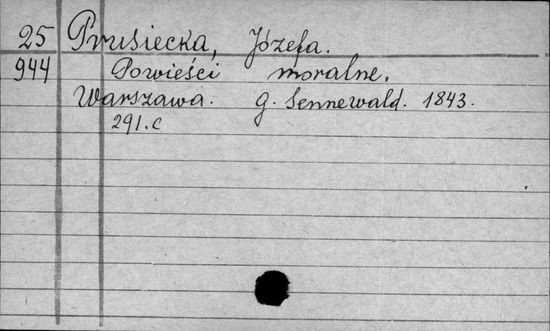 25 Prusiecka, Józefa.
944 Powieści moralne.
Warszawa. G. Sennewald. 1843.
291.c